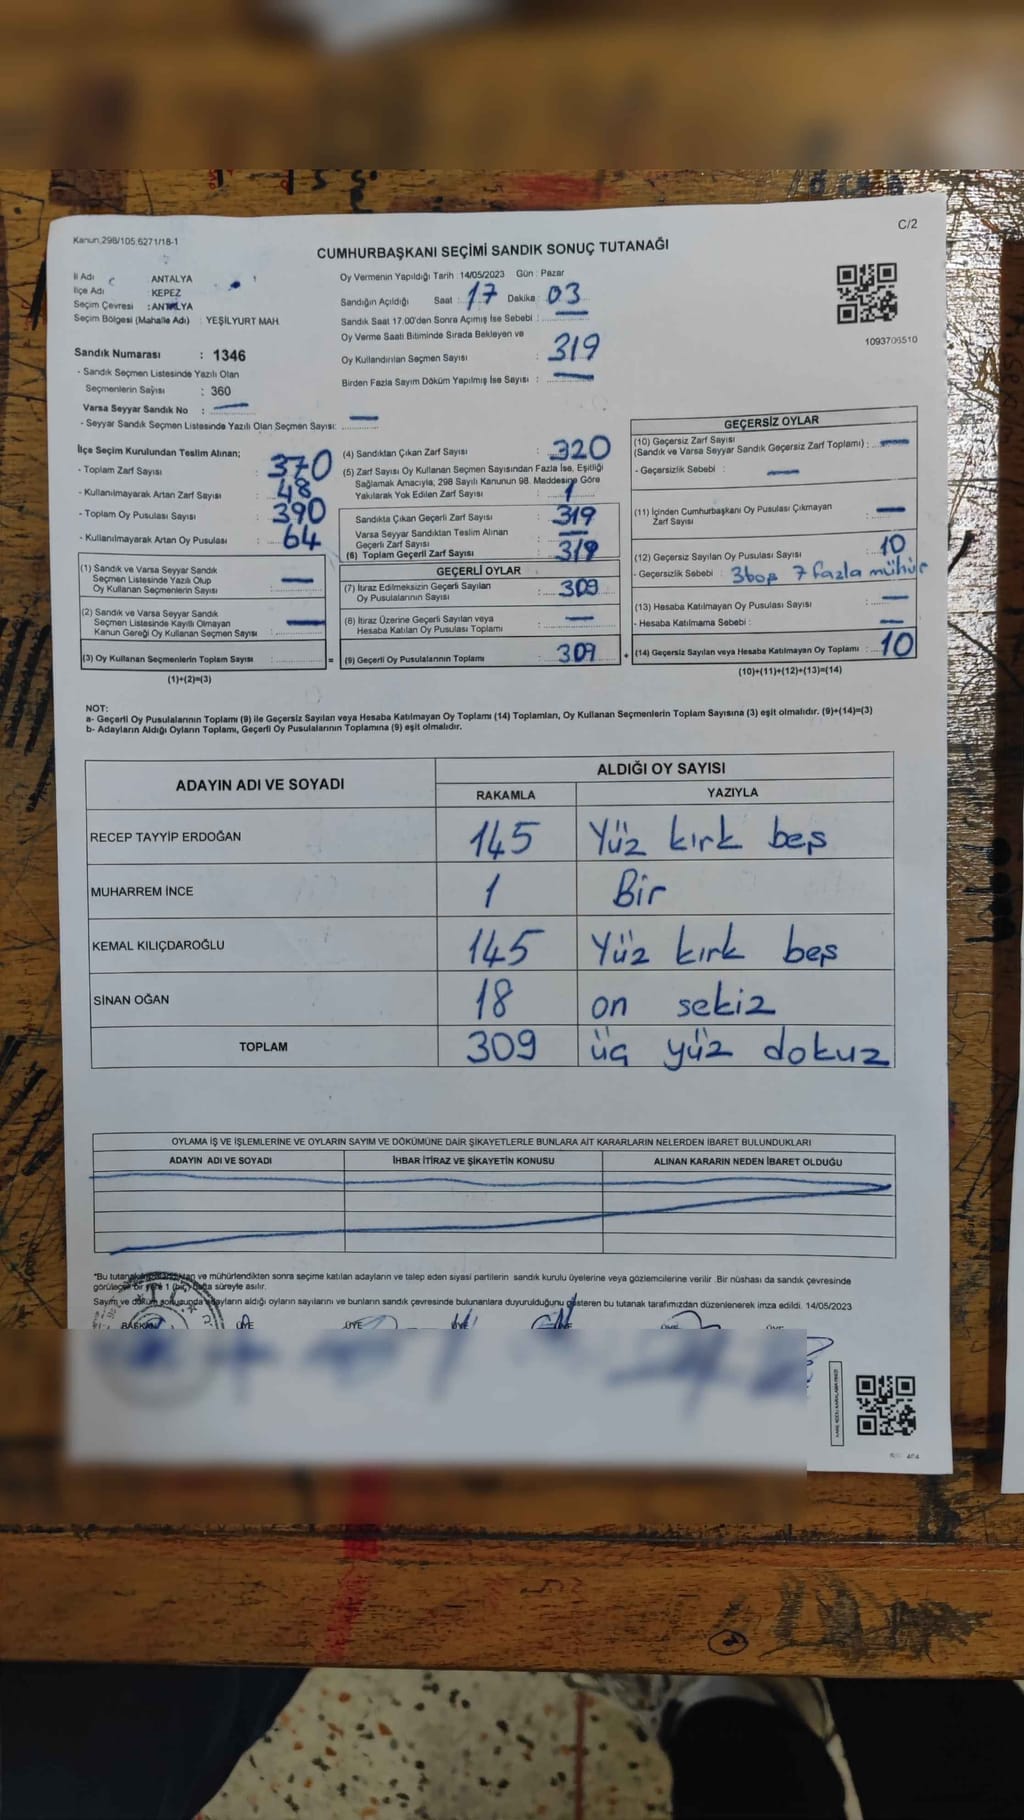 Kanun.298/105.6271/18-1
C/2
CUMHURBAŞKANI SEÇİMİ SANDIK SONUÇ TUTANAĞI
İl Adı ANTALYA
İlçe Adı : KEPEZ
Seçim Çevresi : ANTALYA
Seçim Bölgesi (Mahalle Adı) : YEŞİLYURT MAH.
Sandık Numarası : 1346
- Sandık Seçmen Listesinde Yazılı Olan
Seçmenlerin Sayısı : 360
Varsa Seyyar Sandık No : —
- Seyyar Sandık Seçmen Listesinde Yazılı Olan Seçmen Sayısı: —
Oy Vermenin Yapıldığı Tarih : 14/05/2023 Gün : Pazar
Sandığın Açıldığı Saat : 17 Dakika : 03
Sandık Saat 17.00'dan Sonra Açımış İse Sebebi : —
Oy Verme Saati Bitiminde Sırada Bekleyen ve
Oy Kullandırılan Seçmen Sayısı : 319
Birden Fazla Sayım Döküm Yapılmış İse Sayısı : —
1093706510
İlçe Seçim Kurulundan Teslim Alınan;
- Toplam Zarf Sayısı : 370
- Kullanılmayarak Artan Zarf Sayısı : 48
- Toplam Oy Pusulası Sayısı : 390
- Kullanılmayarak Artan Oy Pusulası : 64
(1) Sandık ve Varsa Seyyar Sandık
Seçmen Listesinde Yazılı Olup
Oy Kullanan Seçmenlerin Sayısı : —
(2) Sandık ve Varsa Seyyar Sandık
Seçmen Listesinde Kayıtlı Olmayan
Kanun Gereği Oy Kullanan Seçmen Sayısı : —
(3) Oy Kullanan Seçmenlerin Toplam Sayısı : =
(1)+(2)=(3)
(4) Sandıktan Çıkan Zarf Sayısı : 320
(5) Zarf Sayısı Oy Kullanan Seçmen Sayısından Fazla İse, Eşitliği
Sağlamak Amacıyla, 298 Sayılı Kanunun 98. Maddesine Göre
Yakılarak Yok Edilen Zarf Sayısı : 1
Sandıkta Çıkan Geçerli Zarf Sayısı : 319
Varsa Seyyar Sandıktan Teslim Alınan
Geçerli Zarf Sayısı : —
(6) Toplam Geçerli Zarf Sayısı : 319
GEÇERLİ OYLAR
(7) İtiraz Edilmeksizin Geçerli Sayılan
Oy Pusulalarının Sayısı : 309
(8) İtiraz Üzerine Geçerli Sayılan veya
Hesaba Katılan Oy Pusulası Toplamı : —
(9) Geçerli Oy Pusulalarının Toplamı : 309 +
GEÇERSİZ OYLAR
(10) Geçersiz Zarf Sayısı
(Sandık ve Varsa Seyyar Sandık Geçersiz Zarf Toplamı) : —
- Geçersizlik Sebebi : —
(11) İçinden Cumhurbaşkanı Oy Pusulası Çıkmayan
Zarf Sayısı : —
(12) Geçersiz Sayılan Oy Pusulası Sayısı : 10
- Geçersizlik Sebebi : 3 boş 7 fazla mühür
(13) Hesaba Katılmayan Oy Pusulası Sayısı : —
- Hesaba Katılmama Sebebi : —
(14) Geçersiz Sayılan veya Hesaba Katılmayan Oy Toplamı : 10
(10)+(11)+(12)+(13)=(14)
NOT:
a- Geçerli Oy Pusulalarının Toplamı (9) ile Geçersiz Sayılan veya Hesaba Katılmayan Oy Toplamı (14) Toplamları, Oy Kullanan Seçmenlerin Toplam Sayısına (3) eşit olmalıdır. (9)+(14)=(3)
b- Adayların Aldığı Oyların Toplamı, Geçerli Oy Pusulalarının Toplamına (9) eşit olmalıdır.
ADAYIN ADI VE SOYADI ALDIĞI OY SAYISI
RAKAMLA YAZIYLA
RECEP TAYYİP ERDOĞAN 145 Yüz kırk beş
MUHARREM İNCE 1 Bir
KEMAL KILIÇDAROĞLU 145 Yüz kırk beş
SİNAN OĞAN 18 on sekiz
TOPLAM 309 üç yüz dokuz
OYLAMA İŞ VE İŞLEMLERİNE VE OYLARIN SAYIM VE DÖKÜMÜNE DAİR ŞİKAYETLERLE BUNLARA AİT KARARLARIN NELERDEN İBARET BULUNDUKLARI
ADAYIN ADI VE SOYADI İHBAR İTİRAZ VE ŞİKAYETİN KONUSU ALINAN KARARIN NEDEN İBARET OLDUĞU
ve mühürlendikten sonra seçime katılan adayların ve talep eden siyasi partilerin sandık kurulu üyelerine veya gözlemcilerine verilir. Bir nüshası da sandık çevresinde
görülecek bir yere 1 (bir) hafta süreyle asılır.
Sayım ve döküm sonucunda adayların aldığı oyların sayılarını ve bunların sandık çevresinde bulunanlara duyurulduğunu gösteren bu tutanak tarafımızdan düzenlenerek imza edildi. 14/05/2023
BAŞKAN ÜYE ÜYE ÜYE ÜYE ÜYE ÜYE